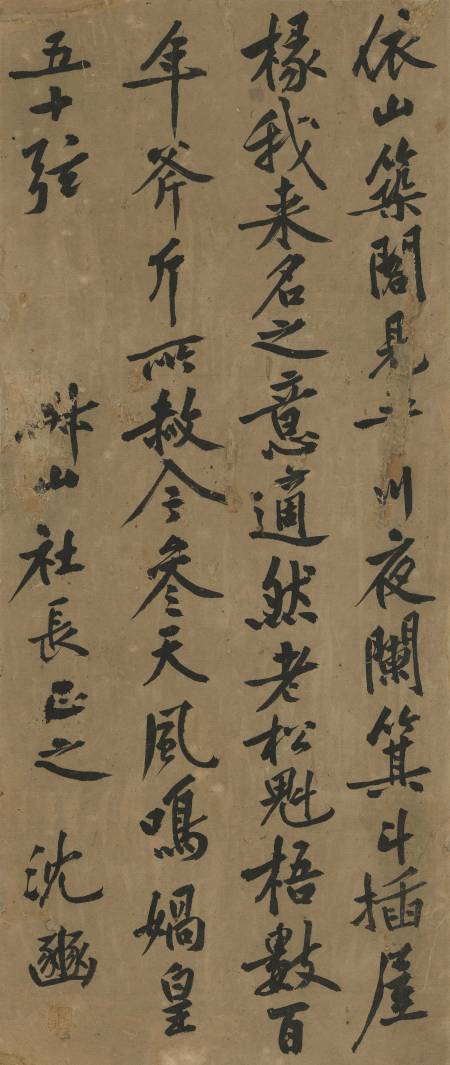 依山築閣見平川夜闌箕斗插屋
椽我来名之意適然老松魁梧數百
年斧斤所赦今參天風鳴媧皇
五十弦
山社長正之 沈